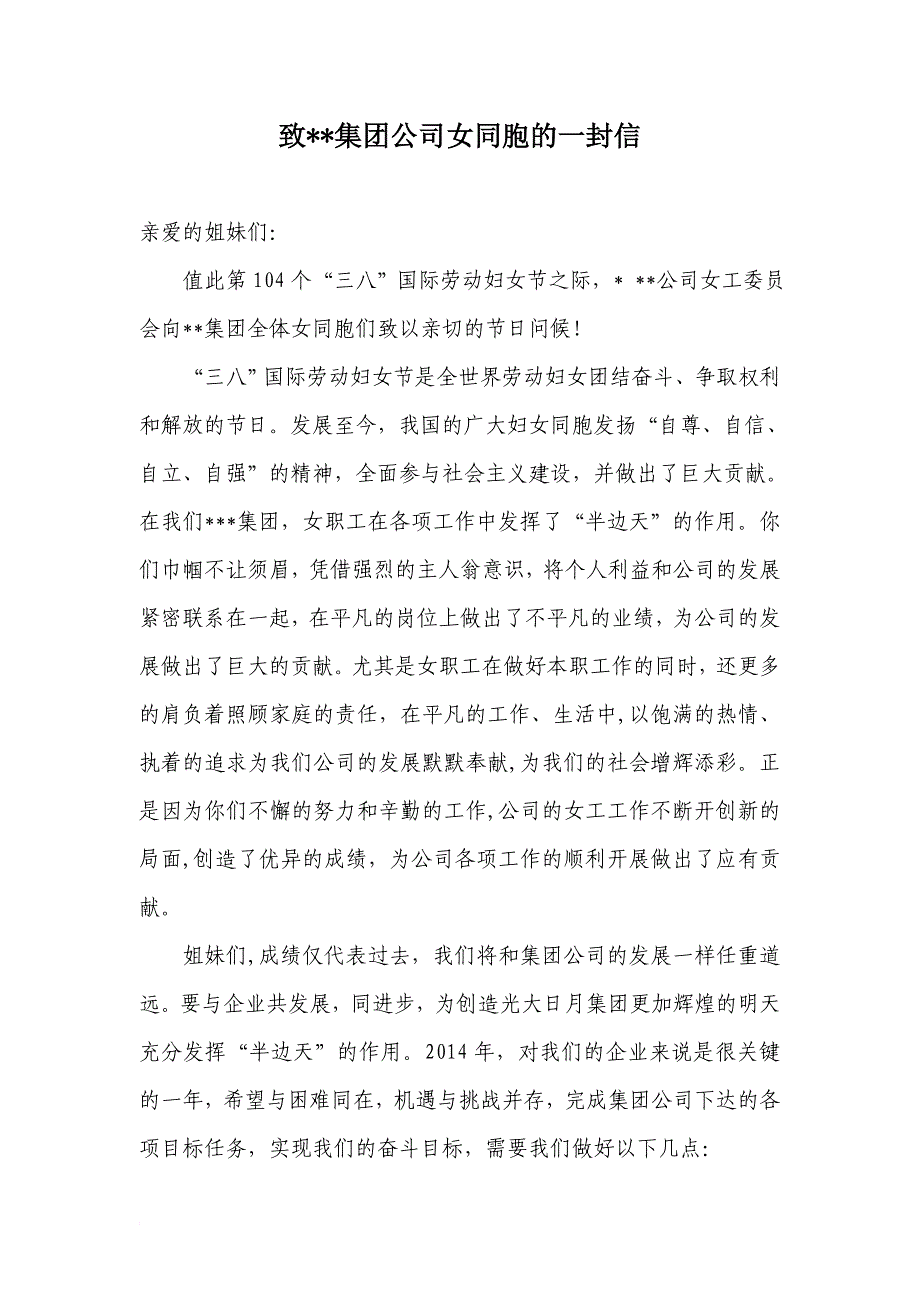 致**集团公司女同胞的一封信
亲爱的姐妹们：
值此第 104 个“三八”国际劳动妇女节之际，* **公司女工委员
会向**集团全体女同胞们致以亲切的节日问候！
“三八”国际劳动妇女节是全世界劳动妇女团结奋斗、争取权利
和解放的节日。发展至今，我国的广大妇女同胞发扬“自尊、自信、
自立、自强”的精神，全面参与社会主义建设，并做出了巨大贡献。
在我们***集团，女职工在各项工作中发挥了“半边天”的作用。你
们巾帼不让须眉，凭借强烈的主人翁意识，将个人利益和公司的发展
紧密联系在一起，在平凡的岗位上做出了不平凡的业绩，为公司的发
展做出了巨大的贡献。尤其是女职工在做好本职工作的同时，还更多
的肩负着照顾家庭的责任，在平凡的工作、生活中,以饱满的热情、
执着的追求为我们公司的发展默默奉献,为我们的社会增辉添彩。正
是因为你们不懈的努力和辛勤的工作,公司的女工工作不断开创新的
局面,创造了优异的成绩，为公司各项工作的顺利开展做出了应有贡
献。
姐妹们,成绩仅代表过去，我们将和集团公司的发展一样任重道
远。要与企业共发展，同进步，为创造光大日月集团更加辉煌的明天
充分发挥“半边天”的作用。2014 年，对我们的企业来说是很关键
的一年，希望与困难同在，机遇与挑战并存，完成集团公司下达的各
项目标任务，实现我们的奋斗目标，需要我们做好以下几点：